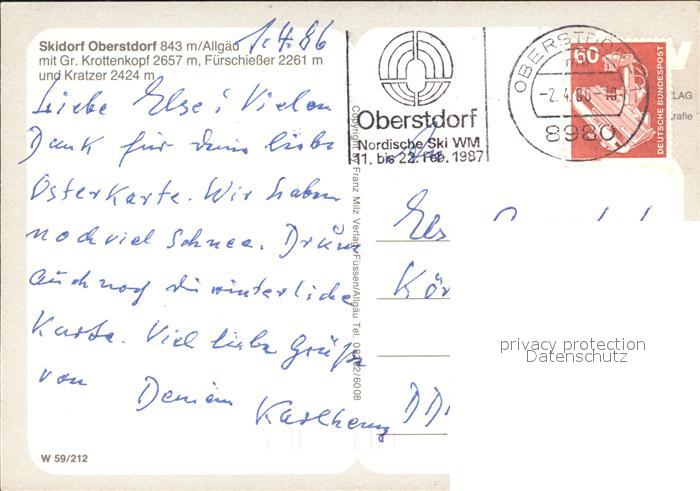 Skidorf Oberstdorf 843 m/Allgäu
mit Gr. Krottenkopf 2657 m, Fürschießer 2261 m
und Kratzer 2424 m
1.4.86
Liebe Else! Vielen
Dank für deine liebe
Osterkarte. Wir haben
noch viel Schnee. Drum
auch noch die winterliche
Karte. Viel liebe Grüße
von Deinem Karlheinz
W 59/212
Copyright by Franz Milz Verlag Füssen/Allgäu Tel. 08362/6008
Oberstdorf
Nordische Ski WM
11. bis 22. Feb. 1987
OBERSTDORF
-2.4.86-18
8980
60
DEUTSCHE BUNDESPOST
LAG
rafie
An
Els
Kör
DD
privacy protection
Datenschutz